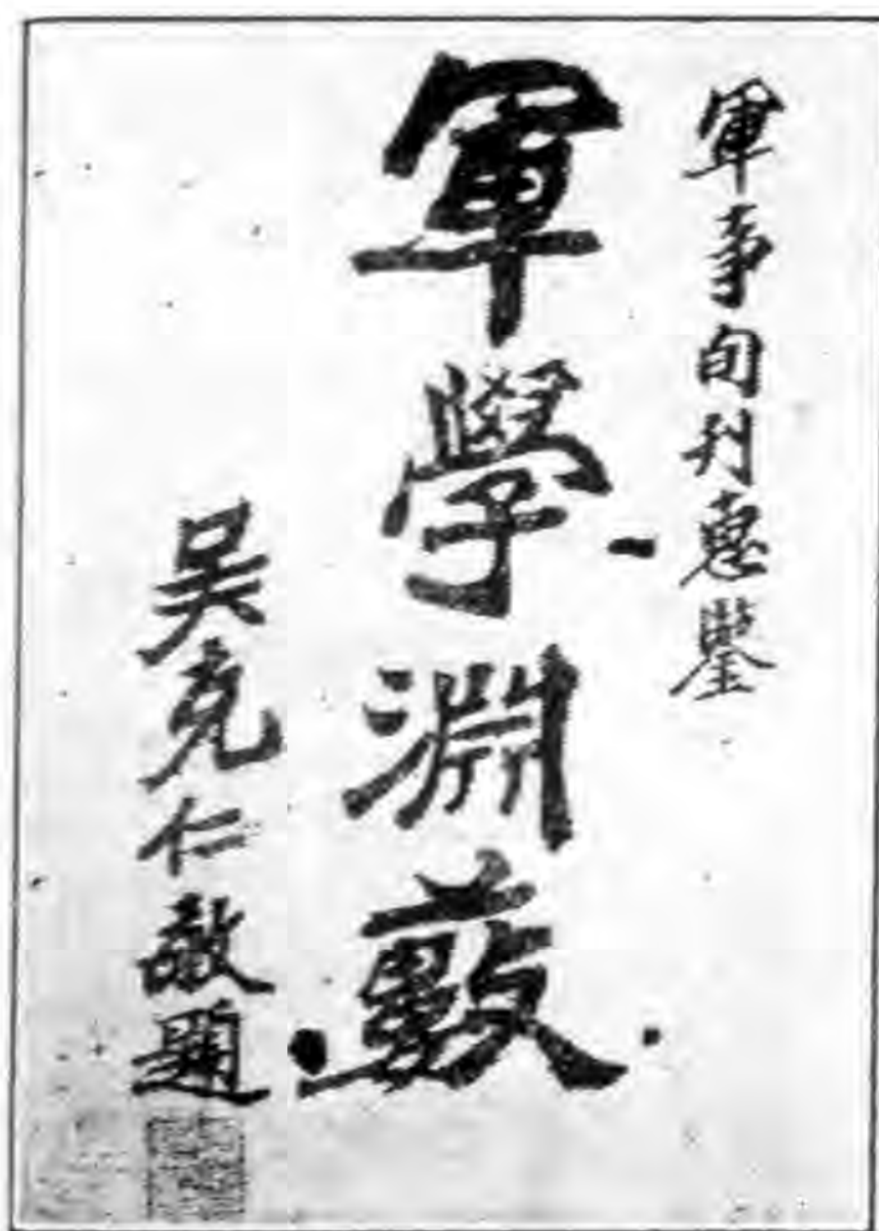 軍事旬刊惠鑒
軍學淵藪
吴克仁敬題